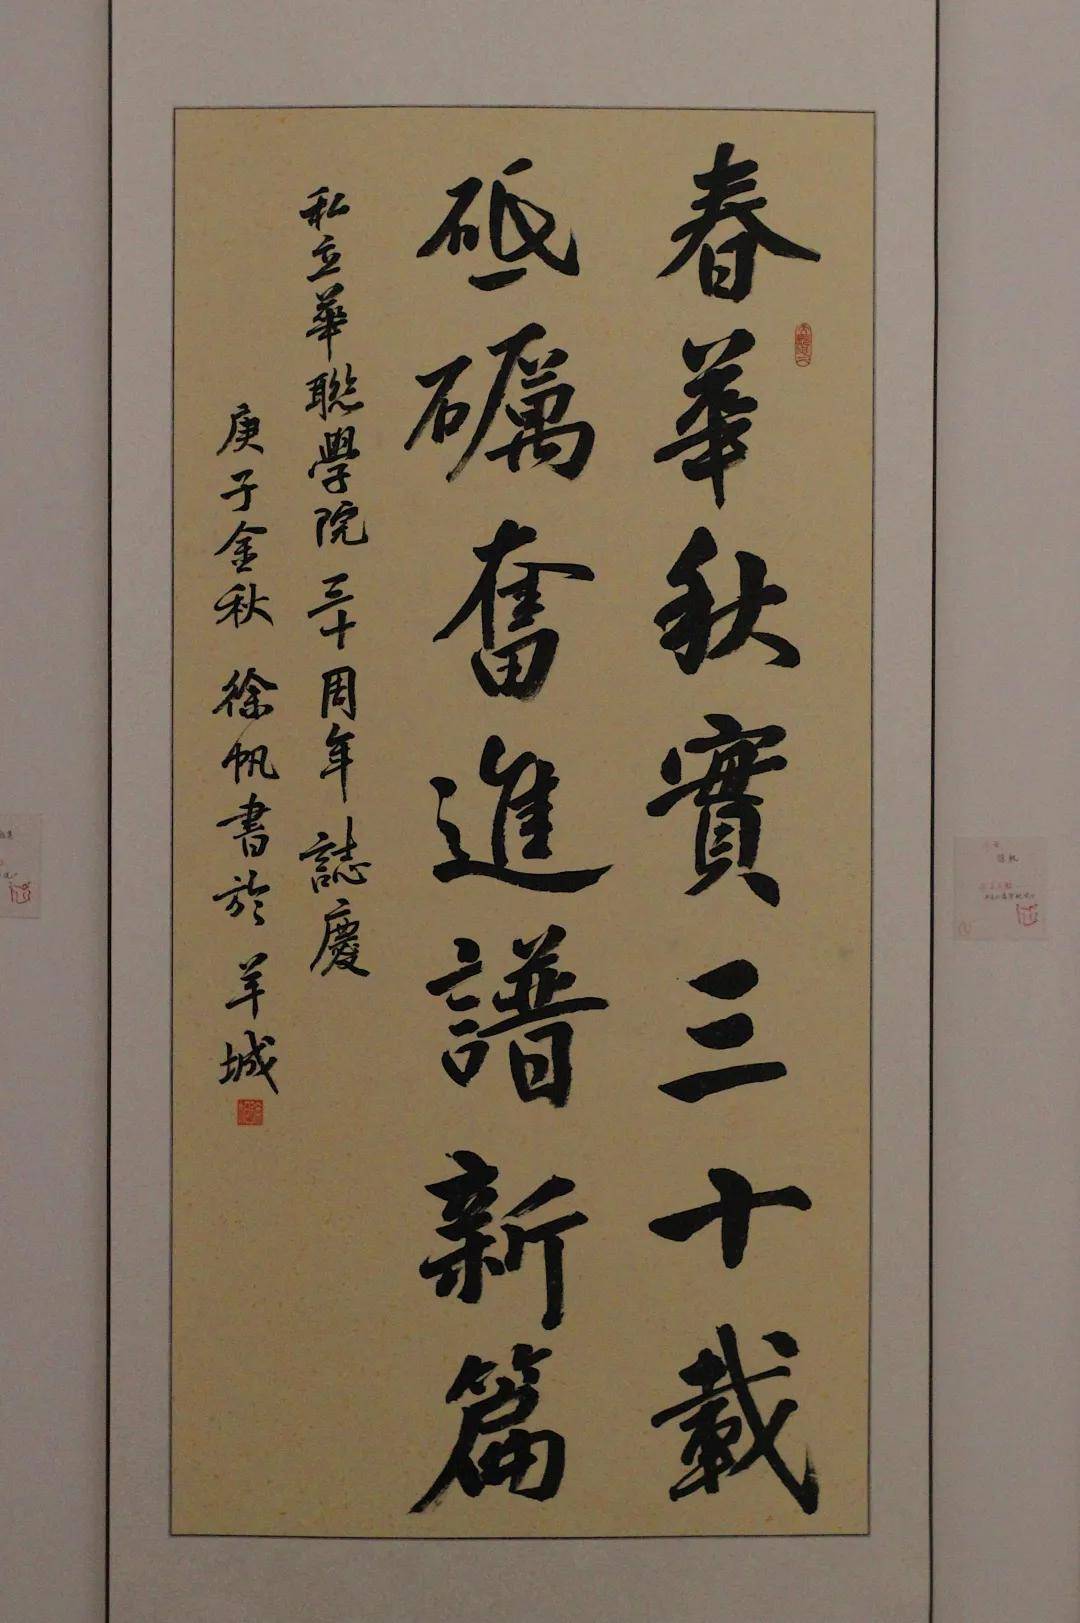 春華秋實三十載
砥礪奮進譜新篇
私立華聯學院三十周年誌慶
庚子金秋 徐帆書於羊城
徐帆